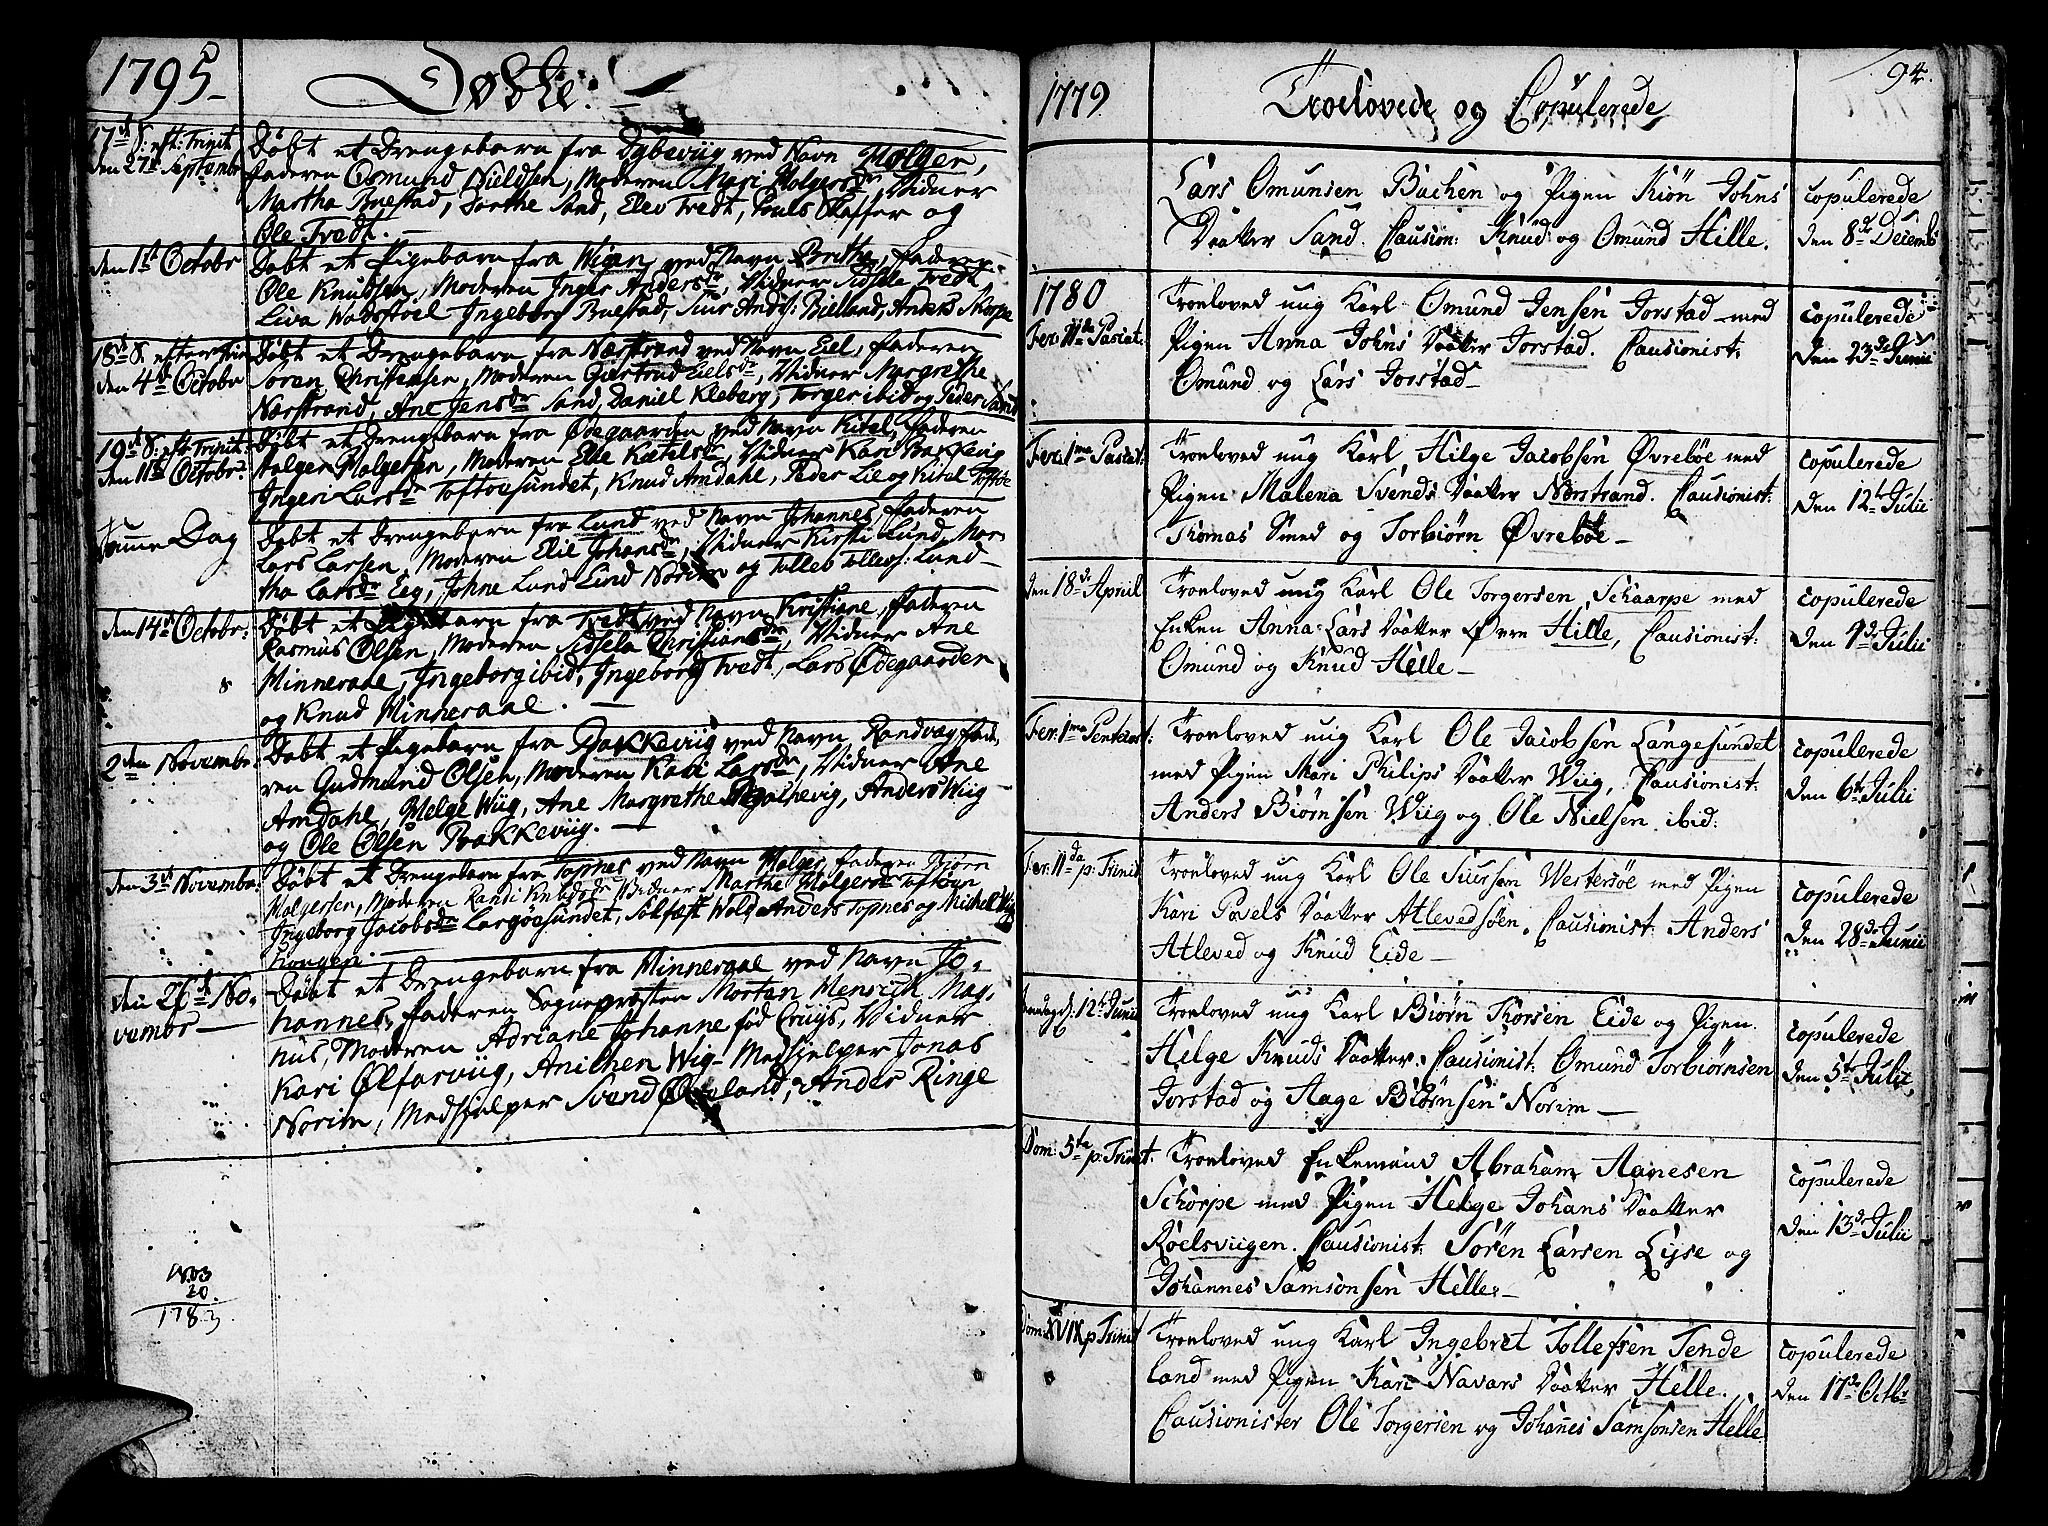 1795
Døbte
17de S: eft: Trinit
den 27de Septembr
Døbt et Drengebarn fra Dybeviig ved Navn Holger,
faderen Osmund Nieldsen, Moderen Mari Holgersdr Vidner
Martha Buestad, Dorthe Sand, Elev Tvedt, Pouls Skaffer og
Ole Tvedt.
den 1ste Octobr
Døbt et Pigebarn fra Wigen ved Navn Brithe, faderen
Ole Knudsen, Moderen Inger Andersdr, Vidner Sidsele Tvedt
Liva Wadsstoel Ingeborg Buestad, Siur Andsr: Bielland, Anders Skorpe
18de S. efter Trin
den 4de Octobr
Døbt et Drengebarn fra Nærstrand ved Navn Eel, faderen
Søren Christensen, Moderen Giertrud Eelsdr, Vidner Margrethe
Nærstrand, Ane Jensdr Sand, Daniel Kleberg, Torger ibid og Peder Sand
19de S: eft Trinit:
den 11te Octobr.
Døbt et Drengebarn fra Ødegaarden ved Navn Kitel, faderen
Holger Holgersen, Moderen Elle Kætelsdr, Vidner Kari Bakkevig
Ingeri Larsdr Toftøesundet, Knud Amdahl, Peder Lie og Kitel Toftøe
samme Dag
Døbt et Drengebarn fra Lund ved Navn Johannes, faderen
Lars Larsen, Moderen Elie Johansdr, Vidner Kirsti Lund, Mar-
tha Larsdr Eeg, Johne Lund Eind Norim og Tolleb Tollevs: Lund
den 14de Octobr:
Døbt et Pigebarn fra Tvedt ved Navn Kristiane, faderen
Rasmus Olsen, Moderen Sidsela Christiansdr, Vidner Ane
Minneraae, Ingeborg ibid, Ingeborg Tvedt, Lars Ødegaarden
og Knud Minneraae.
2den Novembr.
Døbt et Pigebarn fra Bakkeviig ved Navn Randvag, fade-
ren Gudmund Olsen, Moderen Kari Larsdr, Vidner Ane
Amdahl, Helge Wiig, Ane Margrethe Bakkevig, Anders Wiig
og Ole Olsen Bakkeviig.
den 3de Novembr.
Døbt et Drengebarn fra Topnes ved Navn Holger, faderen Biørn
Holgersen, Moderen Randi Knudsdr Vidner Marthe Holgersdr Toftøen
Ingeborg Jacobsdr Largøesundet, Solfæst Wold, Anders Topnes og Michell Wiig
Kongen.
den 26de No-
vembr
Døbt et Drengebarn fra Minneraae ved Navn Jo-
hannes, faderen Sogneprosten Mortan Henrich Mag-
nus, Moderen Adriane Johanne fød Cruys, Vidner
Kari Ølfarviig, Anichen Wig. Medhjelper Jonas
Norim, Medhjelper Svend Østeland, Ander Ringe
1803
20.
1783
1779
Troelovede og Copulerede
94.
Lars Omunsen Bachen og Pigen Kiøn Johns
Daatter Sand. Causion: Knud og Omund Hille.
copulerede
den 8de Decemb
1780
Fer: IIda Pascat.
Troeloved ung Karl Omund Jensen Jorstad med
Pigen Anna Johns Daatter Jorstad. Causionist:
Omund og Lars Jorstad
copulerede
den 23de Junii
Fer: 1ma Pascat:
Troeloved ung Karl Helge Jacobsen Øvrebøe med
Pigen Malena Svends Daatter Nærstrand. Causionist:
Thomas Smed og Torbiørn Øvrebøe
copulerede
den 12te Julii
den 18de April
Troeloved ung Karl Ole Torgersen Schaarpe med
Enken Anna Lars Daatter Øvre Hille, Causionist:
Omund og Knud Helle
copulerede
den 9de Julii
Fer: 1ma Pentecost:
Troeloved ung Karl Ole Jacobsen Langesundet
med Pigen Mari Philips Daatter Wiig, Causionist:
Anders Biørnsen Wiig og Ole Nielsen ibid:
copulerede
den 6te Julii
Fer: IIda p: Trinit
Troeloved ung Karl Ole Siursen Westersøe med Pigen
Kari Povels Daatter Atlevedsøen. Causionist: Anders
Atleved og Knud Eide
copulerede
den 28de Junii
Mandag d: 12te Junii
Troeloved ung Karl Biørn Thorsen Eide og Pigen
Helge Knuds Daatter. Causionist: Omund Torbiørnsen
Jorstad og Aage Biørnsen Norim
copulerede
den 5te Julii
Dom: 5ta p. Trinit.
Troeloved Enkemand Abraham Aanesen
Schorpe med Pigen Helge Johans Daatter
Røelsviigen. Causionist: Søren Larsen Lyse og
Johannes Samsonsen Helle
copulerede
den 13de Julii
Dom: XVIX p Trinit
Troeloved ung Karl Ingebret Tollefsen Tende
land med Pigen Kari Navars Daatter Helle.
Causionister Ole Torgersen og Johannes Samsonsen Helle
copulerede
den 17de Octb: